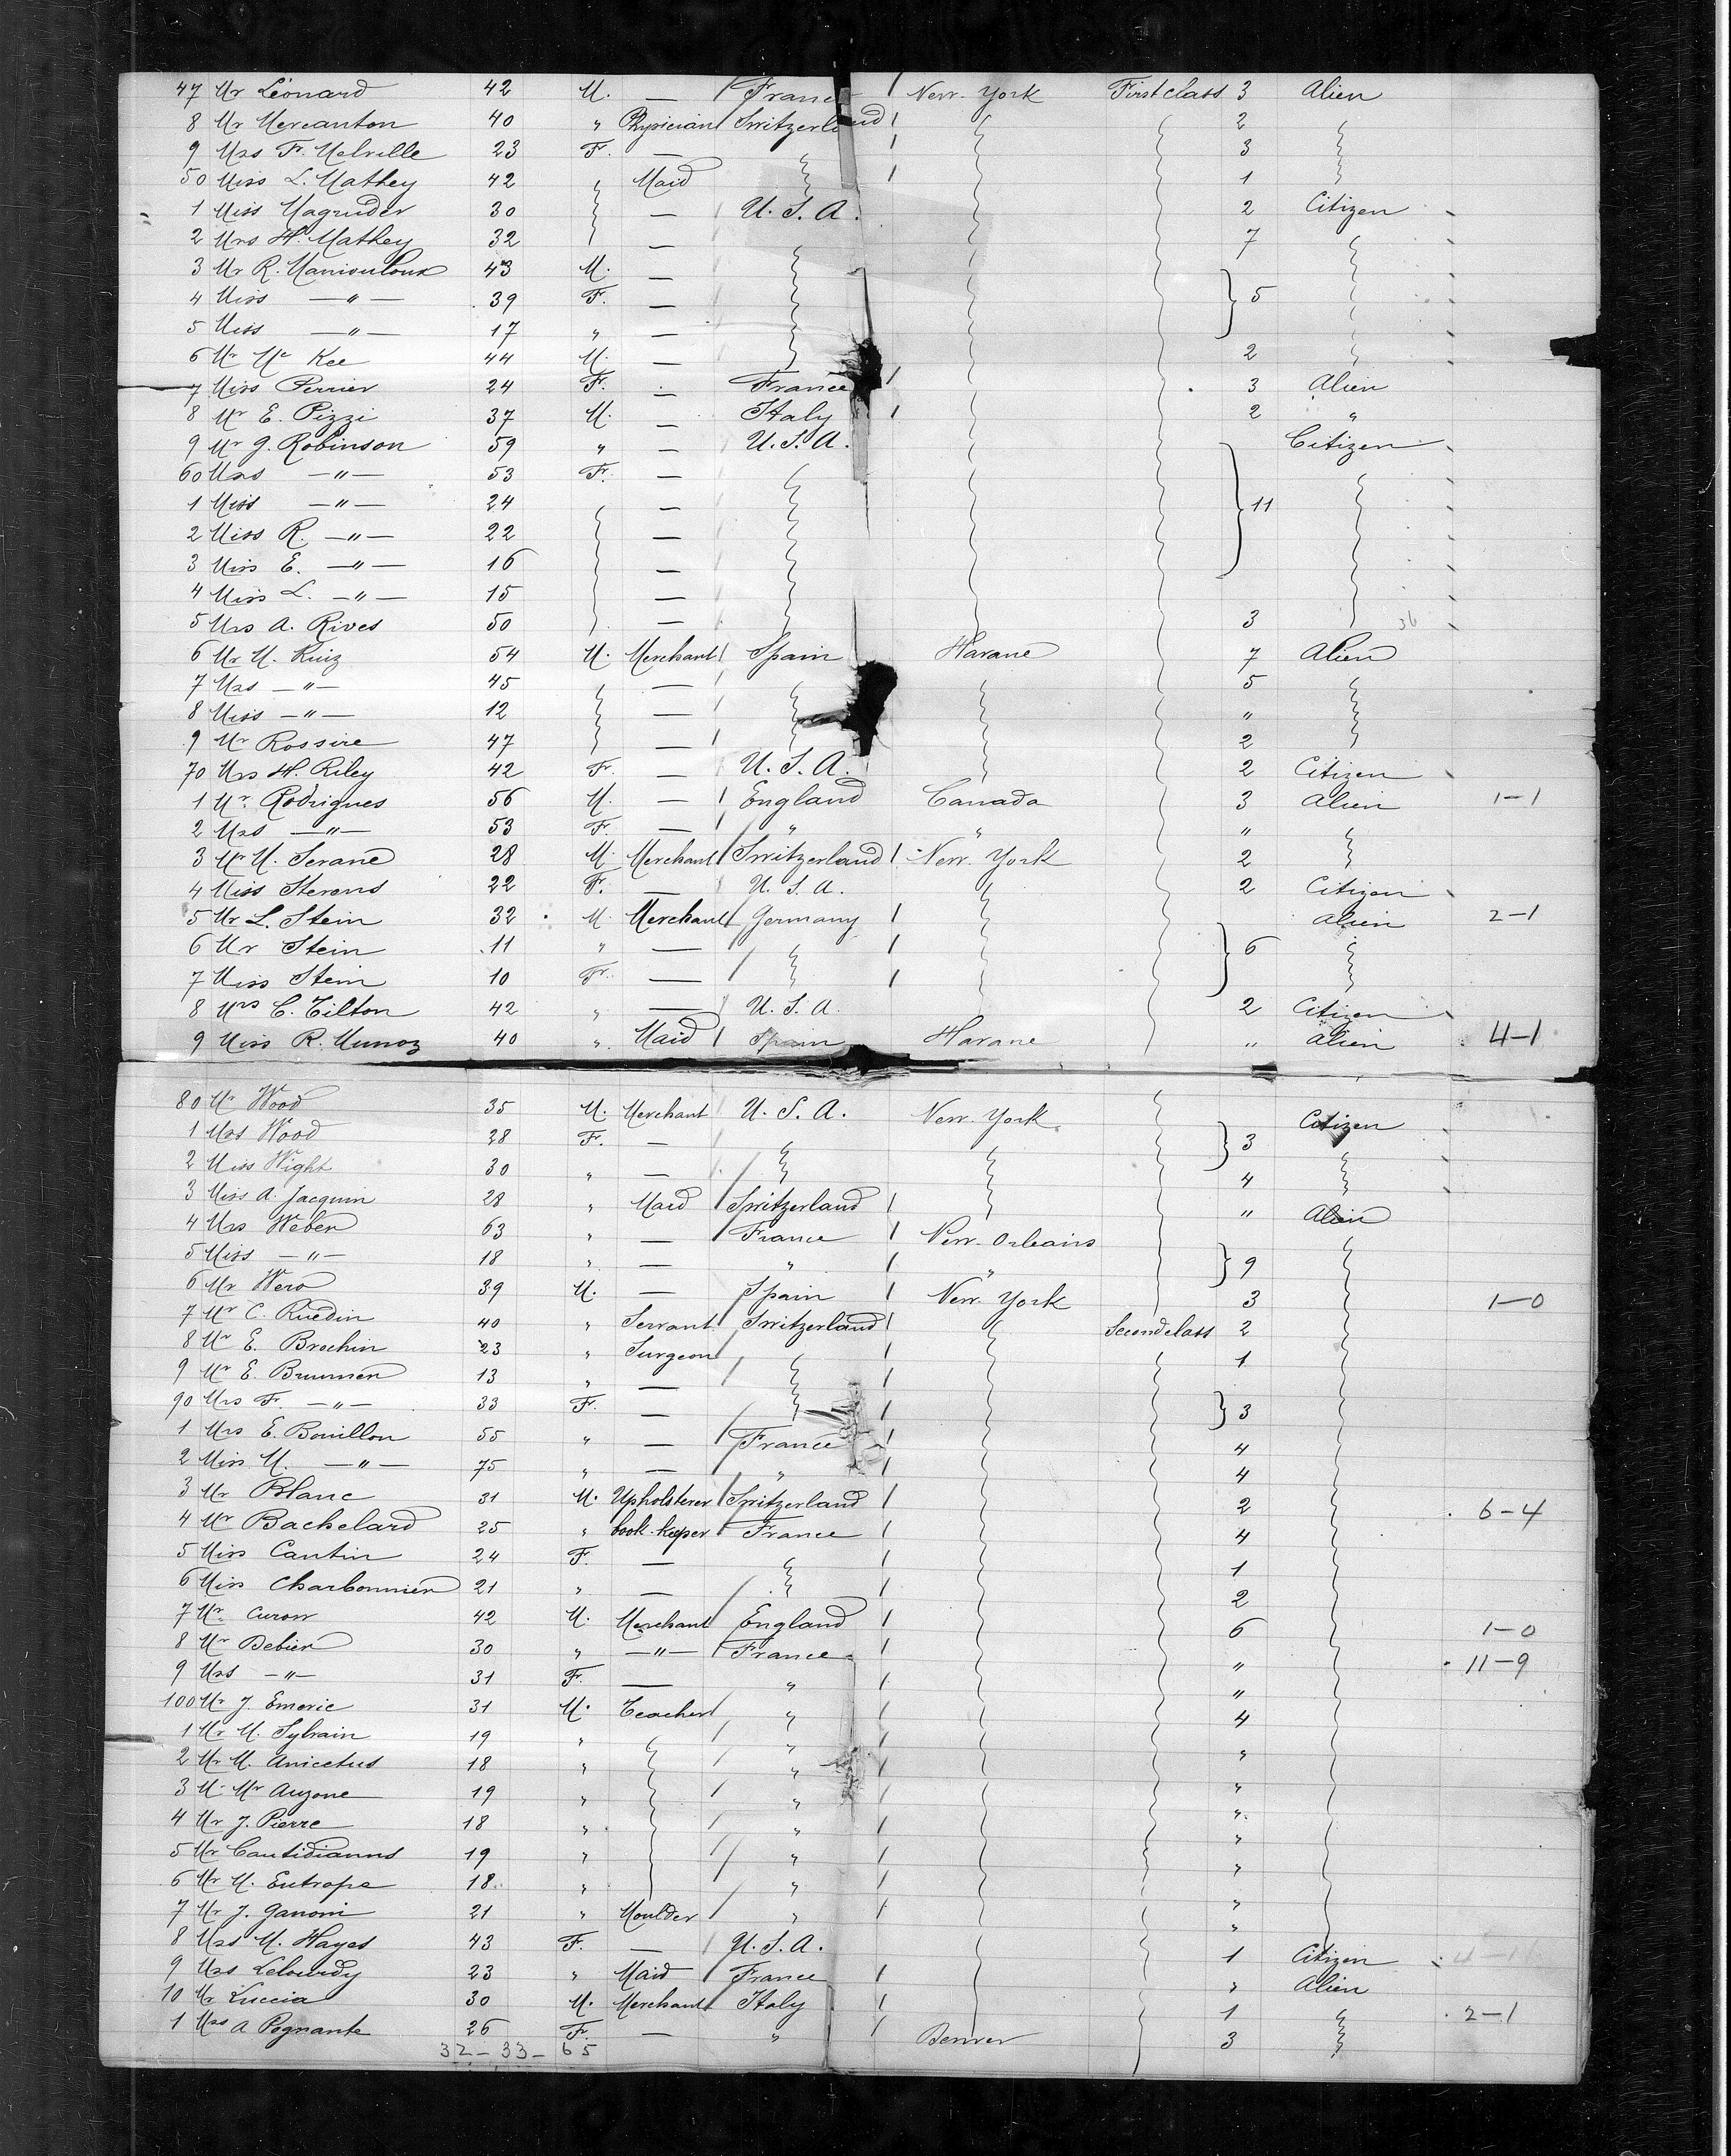 47 Mr Léonard 42 M. — France New-York First class 3 Alien
8 Mr Mercanton 40 " Physician Switzerland 2
9 Mrs Fr. Melville 23 F. — 3
50 Miss L. Mathey 42 Maid 1
1 Miss Magruder 30 — U.S.A. 2 Citizen
2 Mrs H. Mathey 32 — 7
3 Mr R. 43 M. —
4 Miss —"— 39 F. — 5
5 Miss —"— 17 " —
6 Mr Mc Kee 44 M. — 2
7 Miss Perrier 24 F. — France 3 Alien
8 Mr E. Pizzi 37 M. — Italy 2 "
9 Mr J. Robinson 59 " — U.S.A. Citizen
60 Mrs —"— 53 F. —
1 Miss —"— 24 — 11
2 Miss R. —"— 22 —
3 Miss E. —"— 16 —
4 Miss L. —"— 15 —
5 Mrs A. Rives 50 — 3 36
6 Mr M. Ruiz 54 M. Merchant Spain Havane 7 Alien
7 Mrs —"— 45 — 5
8 Miss —"— 12 — "
9 Mr Rossire 47 — 2
70 Mrs H. Riley 42 F. — U.S.A. 2 Citizen
1 Mr. Rodrigues 56 M. — England Canada 3 Alien 1-1
2 Mrs —"— 53 F. — " " "
3 Mr M. Serane 28 M. Merchant Switzerland New-York 2
4 Miss Stevens 22 F. — U.S.A. 2 Citizen
5 Mr L. Stein 32 M. Merchant Germany Alien 2-1
6 Mr Stein 11 " — 6
7 Miss Stein 10 F. —
8 Mrs C. Tilton 42 " — U.S.A. 2 Citizen
9 Miss R. Munoz 40 " Maid Spain Havane " Alien 4-1
80 Mr Wood 35 M. Merchant U.S.A. New-York Citizen
1 Mrs Wood 28 F. — 3
2 Miss Wight 30 " — 4
3 Miss A. Jacquin 28 " Maid Switzerland " Alien
4 Mrs Weber 63 " — France New-Orleans
5 Miss —"— 18 " — " " 9
6 Mr Wero 39 M. — Spain New-York 3 1-0
7 Mr C. Ruedin 40 " Servant Switzerland Second class 2
8 Mr E. Brochin 23 " Surgeon 1
9 Mr E. Brunner 13 " —
90 Mrs Fr. —"— 33 F. — 3
1 Mrs E. Bouillon 55 " — France 4
2 Miss M. —"— 75 " — " 4
3 Mr Blanc 31 M. Upholsterer Switzerland 2 6-4
4 Mr Bachelard 25 " book-keeper France 4
5 Miss Cantin 24 F. — 1
6 Miss Charbonnier 21 " — 2
7 Mr. Curow 42 M. Merchant England 6 1-0
8 Mr Debier 30 " —"— France " 11-9
9 Mrs —"— 31 F. — " "
100 Mr J. Emeric 31 M. Teacher " 4
1 Mr M. Sylvain 19 " " "
2 Mr M. Anicetus 18 " " "
3 M Mr Auzone 19 " " "
4 Mr J. Pierre 18 " " "
5 Mr Cantidianus 19 " " "
6 Mr M. Eutrope 18 " " "
7 Mr J. Ganoni 21 " Moulder " "
8 Mrs M. Hayes 43 F. — U.S.A. 1 Citizen
9 Mrs 23 " Maid France " Alien
10 Mr Luccia 30 M. Merchant Italy 1 2-1
1 Mrs A Pognante 26 F. — " Denver 3
32-33-65